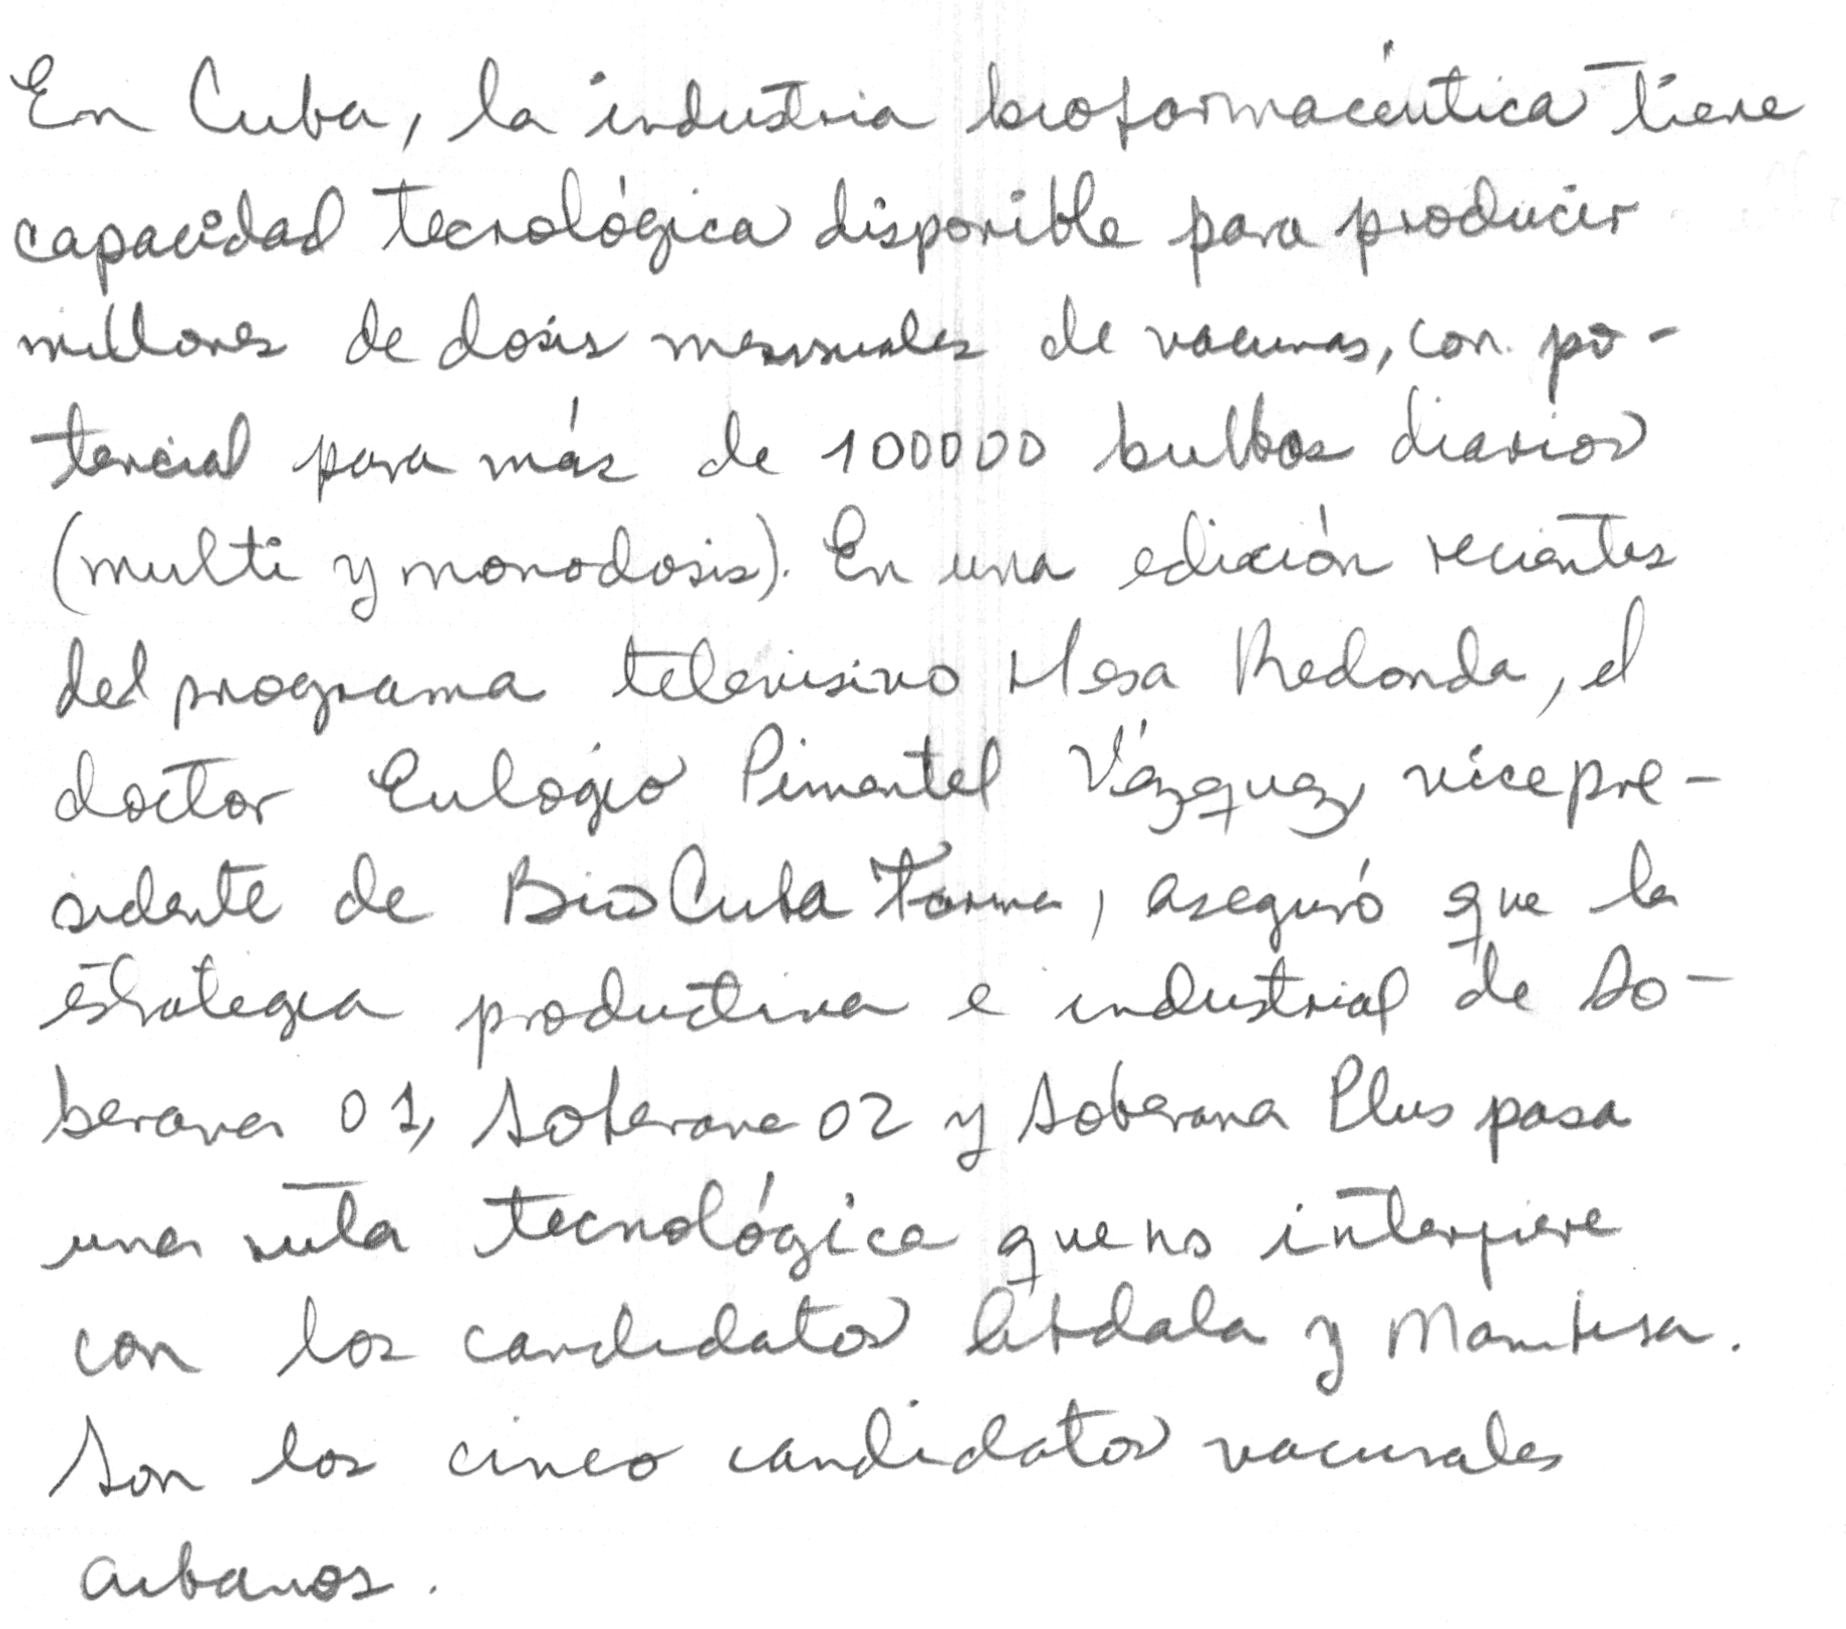 En Cuba, la industria biofarmacéutica tiene
capacidad tecnológica disponible para producir
millones de dosis mensuales de vacunas, con po-
tencial para más de 100000 bulbos diarios
(multi y monodosis). En una edición recientes
del programa televisivo Mesa Redonda, el
doctor Eulogio Pimentel Vázquez, vicepre-
sidente de BioCubaFarma, aseguró que la
estrategia productiva e industrial de So-
berana 01, Soberana 02 y Soberana Plus pasa
una ruta tecnológica que no interfiere
con los candidatos Abdala y Mambisa.
Son los cinco candidatos vacunales
cubanos.